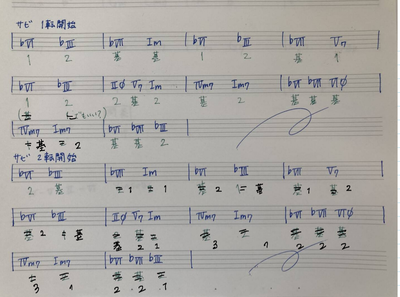 サビ 1転開始
♭Ⅵ ♭Ⅲ ♭Ⅶ Ⅰm ♭Ⅵ ♭Ⅲ ♭Ⅶ Ⅴ7
1 2 基 基 1 2 基 1
♭Ⅵ ♭Ⅲ Ⅱø Ⅴ7 Ⅰm Ⅳm7 Ⅰm7 ♭Ⅵ ♭Ⅶ Ⅵø
1 2 2 基 2 基 2 基 基 基
Ⅳm7 Ⅰm7 ♭Ⅵ ♭Ⅶ ♭Ⅲ
基 2 基 基 2
サビ 2転開始
♭Ⅵ ♭Ⅲ ♭Ⅶ Ⅰm ♭Ⅵ ♭Ⅲ ♭Ⅶ Ⅴ7
2 基 1 1 2 基 1 2
♭Ⅵ ♭Ⅲ Ⅱø Ⅴ7 Ⅰm Ⅳm7 Ⅰm7 ♭Ⅵ ♭Ⅶ Ⅵø
2 基 2 2 1 3 1 2 2 2
Ⅳm7 Ⅰm7 ♭Ⅵ ♭Ⅶ ♭Ⅲ
3 1 2 2 1